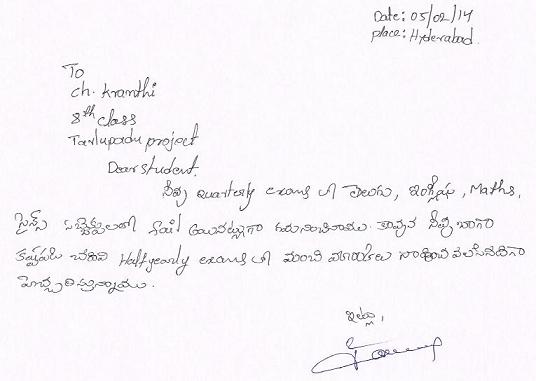 Date: 05/02/14
place: Hyderabad.
To
Ch. Kranthi
8th class
Tarlupadu project
Dear student.
నీవు quarterly exams లో తెలుగు, ఇంగ్లీషు, Maths,
సైన్స్ సబ్జెక్టులలో ఫెయిల్ అయినట్లుగా గమనించినాము. కావున నీవు బాగా
కష్టపడి చదివి Halfyearly exams లో మంచి మార్కులు సాధించ వలసినదిగా
హెచ్చరిస్తున్నాము.
ఇట్లు,